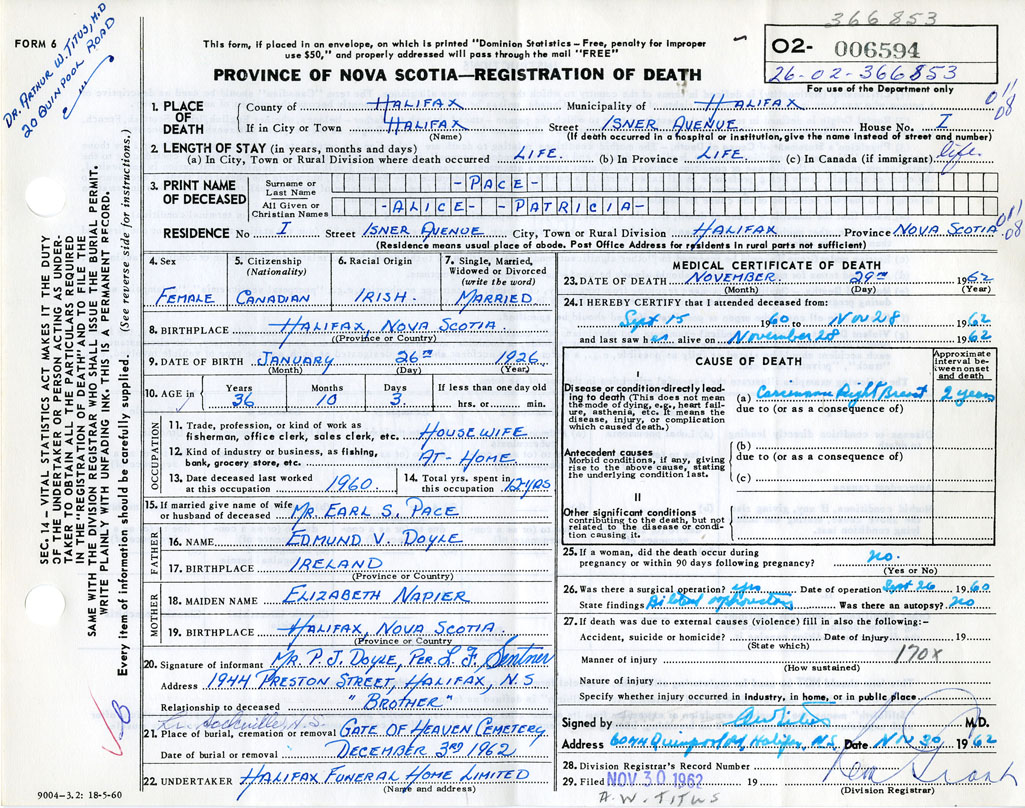 366853
FORM 6
DR. ARTHUR W. TITUS, M.D
206 QUINPOOL ROAD
This form, if placed in an envelope, on which is printed "Dominion Statistics – Free, penalty for improper
use $50," and properly addressed will pass through the mail "FREE"
O2- 006594
26-02-366853
For use of the Department only
PROVINCE OF NOVA SCOTIA—REGISTRATION OF DEATH
SEC. 14 – VITAL STATISTICS ACT MAKES IT THE DUTY
OF THE UNDERTAKER OR PERSON ACTING AS UNDER-
TAKER TO OBTAIN ALL THE PARTICULARS REQUIRED
IN THE "REGISTRATION OF DEATH" AND TO FILE THE
SAME WITH THE DIVISION REGISTRAR WHO SHALL ISSUE THE BURIAL PERMIT.
WRITE PLAINLY WITH UNFADING INK. THIS IS A PERMANENT RECORD.
Every item of information should be carefully supplied. (See reverse side for instructions.)
1. PLACE OF DEATH
County of HALIFAX Municipality of HALIFAX 011 08
If in City or Town HALIFAX Street ISNER AVENUE House No. I
(Name) (If death occurred in a hospital or institution, give the name instead of street and number)
2. LENGTH OF STAY (in years, months and days)
(a) In City, Town or Rural Division where death occurred LIFE. (b) In Province LIFE. (c) In Canada (if immigrant) life.
3. PRINT NAME OF DECEASED
Surname or Last Name -PACE-
All Given or Christian Names -ALICE- -PATRICIA-
RESIDENCE No I Street ISNER AVENUE City, Town or Rural Division HALIFAX Province NOVA SCOTIA 011 08
(Residence means usual place of abode. Post Office Address for residents in rural parts not sufficient)
4. Sex
FEMALE
5. Citizenship
(Nationality)
CANADIAN
6. Racial Origin
IRISH.
7. Single, Married,
Widowed or Divorced
(write the word)
MARRIED
8. BIRTHPLACE HALIFAX, NOVA SCOTIA
((Province or Country)
9. DATE OF BIRTH JANUARY 26TH 1926
(Month) (Day) (Year)
10. AGE in Years 36 Months 10 Days 3 If less than one day old
hrs. or min.
OCCUPATION
11. Trade, profession, or kind of work as
fisherman, office clerk, sales clerk, etc. HOUSEWIFE
12. Kind of industry or business, as fishing,
bank, grocery store, etc. AT-HOME
13. Date deceased last worked
at this occupation 1960
14. Total yrs. spent in
this occupation 12 YRS
15. If married give name of wife
or husband of deceased MR. EARL S. PACE
FATHER
16. NAME EDMUND V. DOYLE
17. BIRTHPLACE IRELAND
(Province or Country)
MOTHER
18. MAIDEN NAME ELIZABETH NAPIER
19. BIRTHPLACE HALIFAX, NOVA SCOTIA
(Province or Country)
20. Signature of informant MR. P. J. DOYLE, PER L. F. Sentner
Address 1944 PRESTON STREET, HALIFAX, N.S
Relationship to deceased "BROTHER"
21. Place of burial, cremation or removal GATE OF HEAVEN CEMETERY
Date of burial or removal DECEMBER 3RD 1962
22. UNDERTAKER HALIFAX FUNERAL HOME LIMITED
(Name and address)
9004-3.2: 18-5-60
MEDICAL CERTIFICATE OF DEATH
23. DATE OF DEATH NOVEMBER 29TH 1962
(Month) (Day) (Year)
24. I HEREBY CERTIFY that I attended deceased from:
Sept 15 1960 to Nov 28 1962
and last saw her alive on November 28 1962
CAUSE OF DEATH
Approximate
interval be-
tween onset
and death
I
Disease or condition directly lead-
ing to death (This does not mean
the mode of dying, e.g., heart fail-
ure, asthenia, etc. It means the
disease, injury, or complication
which caused death.)
(a) Carcinoma Right Breast 2 years
due to (or as a consequence of)
Antecedent causes
Morbid conditions, if any, giving
rise to the above cause, stating
the underlying condition last.
(b)
due to (or as a consequence of)
(c)
II
Other significant conditions
contributing to the death, but not
related to the disease or condi-
tion causing it.
25. If a woman, did the death occur during
pregnancy or within 90 days following pregnancy? no.
(Yes or No)
26. Was there a surgical operation? yes Date of operation Sept 26 1960
State findings Was there an autopsy? no
27. If death was due to external causes (violence) fill in also the following:-
Accident, suicide or homicide? Date of injury 19
(State which)
Manner of injury 170X
(How sustained)
Nature of injury
Specify whether injury occurred in industry, in home, or in public place
Signed by AW Titus M.D.
Address 6044 Quinpool Rd Halifax, N.S. Date Nov 30 1962
28. Division Registrar's Record Number
29. Filed NOV 30 1962 19
(Division Registrar)
A.W. TITUS